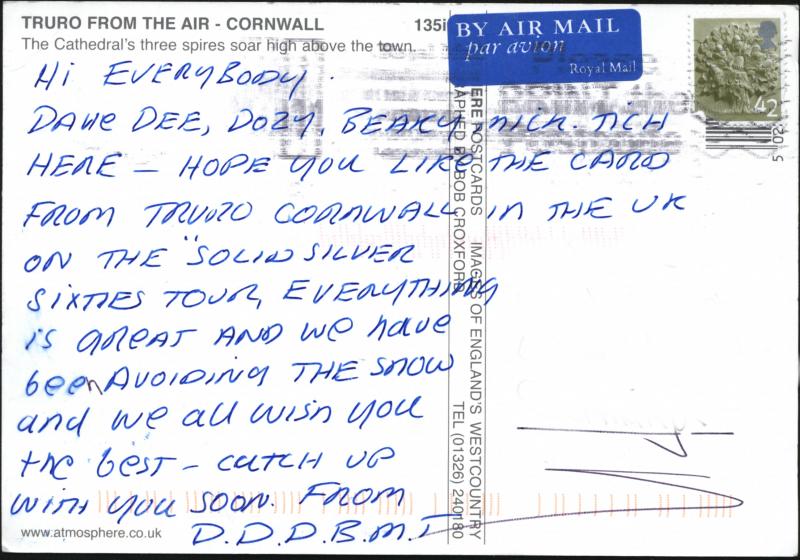 TRURO FROM THE AIR - CORNWALL
The Cathedral's three spires soar high above the town.
135i
BY AIR MAIL
par avion
Royal Mail
42
Hi EVERYBODY.
DAVE DEE, DOZY, BEAKY MICK. TICH
HERE — HOPE YOU LIKE THE CARD
FROM TRURO CORNWALL IN THE UK
ON THE "SOLID SILVER
SIXTIES TOUR, EVERYTHING
is GREAT AND we have
been AVOIDING THE SNOW
and we all wish you
the best — catch up
with you soon. FROM
D.D.D.B.M.T
www.atmosphere.co.uk
ERE POSTCARDS IMAGES OF ENGLAND'S WESTCOUNTRY
BOB CROXFORD
TEL (01326) 240180